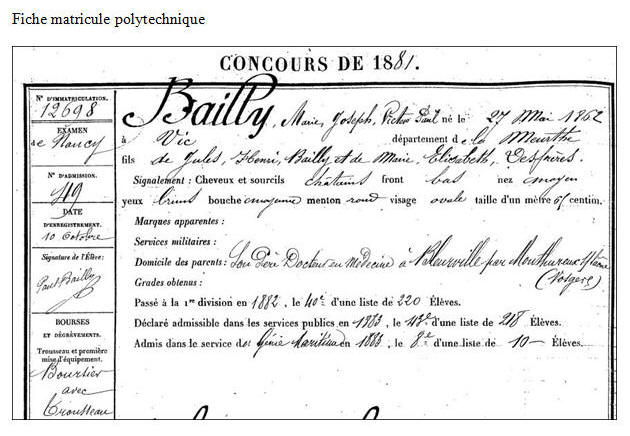 Fiche matricule polytechnique
CONCOURS DE 1881.
N° D'IMMATRICULATION.
12698
EXAMEN
de Nancy
N° D'ADMISSION.
49
DATE
D'ENREGISTREMENT.
10 Octobre
Signature de l'Élève:
Paul Bailly
BOURSES
ET DÉGRÈVEMENTS.
Trousseau et première
mise d'équipement.
Boursier
avec
trousseau
Bailly, Marie, Joseph, Victor Paul né le 27 Mai 1862
à Vic département de la Meurthe
fils de Jules, Henri, Bailly et de Marie, Elizabeth, Desfrères.
Signalement : Cheveux et sourcils châtains front bas nez moyen
yeux bruns bouche moyenne menton rond visage ovale taille d'un mètre 65 centim.
Marques apparentes :
Services militaires :
Domicile des parents: Son Père Docteur en Médecine à Bleurville par Monthureux s/ Saône
(Vosges)
Grades obtenus :
Passé à la 1re division en 1882, le 40e d'une liste de 220 Élèves.
Déclaré admissible dans les services publics en 1883, le 43e d'une liste de 218 Élèves.
Admis dans le service de Génie Maritime en 1883, le 8e d'une liste de 10 Élèves.